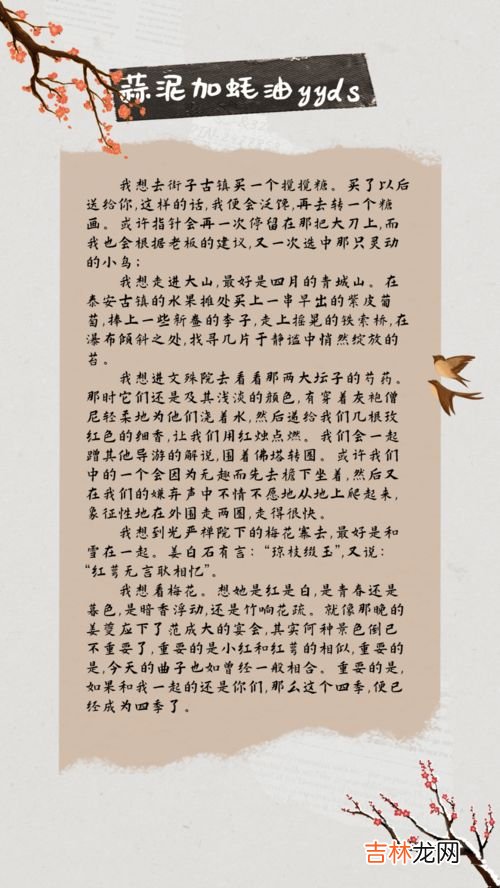 蒜泥加蚝油yyds
我想去街子古镇买一个搅搅糖。买了以后
送给你,这样的话,我便会泛馋,再去转一个糖
画。或许指针会再一次停留在那把大刀上,而
我也会根据老板的建议,又一次选中那只灵动
的小鸟;
我想走进大山,最好是四月的青城山。在
泰安古镇的水果摊处买上一串早出的紫皮葡
萄,捧上一些新鲞的李子,走上摇晃的铁索桥,在
瀑布倾斜之处,找寻几片于静谧中悄然绽放的
苔。
我想进文殊院去看看那两大坛子的芍药。
那时它们还是及其浅淡的颜色,有穿着灰袍僧
尼轻柔地为他们浇着水,然后递给我们几根玫
红色的细香,让我们用红烛点燃。我们会一起
蹭其他导游的解说,围着佛塔转圈。或许我们
中的一个会因为无趣而先去檐下坐着,然后又
在我们的嫌弃声中不情不愿地从地上爬起来,
象征性地在外围走两圈,走得很快。
我想到光严禅院下的梅花寨去,最好是和
雪在一起。姜白石有言:“琼枝缀玉”,又说:
“红萼无言耿相忆”。
我想看梅花。想她是红是白,是青春还是
暮色,是暗香浮动,还是竹响花疏。就像那晚的
姜夔应下了范成大的宴会,其实何种景色倒已
不重要了,重要的是小红和红萼的相似,重要的
是,今天的曲子也如曾经一般相合。重要的是,
如果和我一起的还是你们,那么这个四季,便已
经成为四季了。
吉林龙网